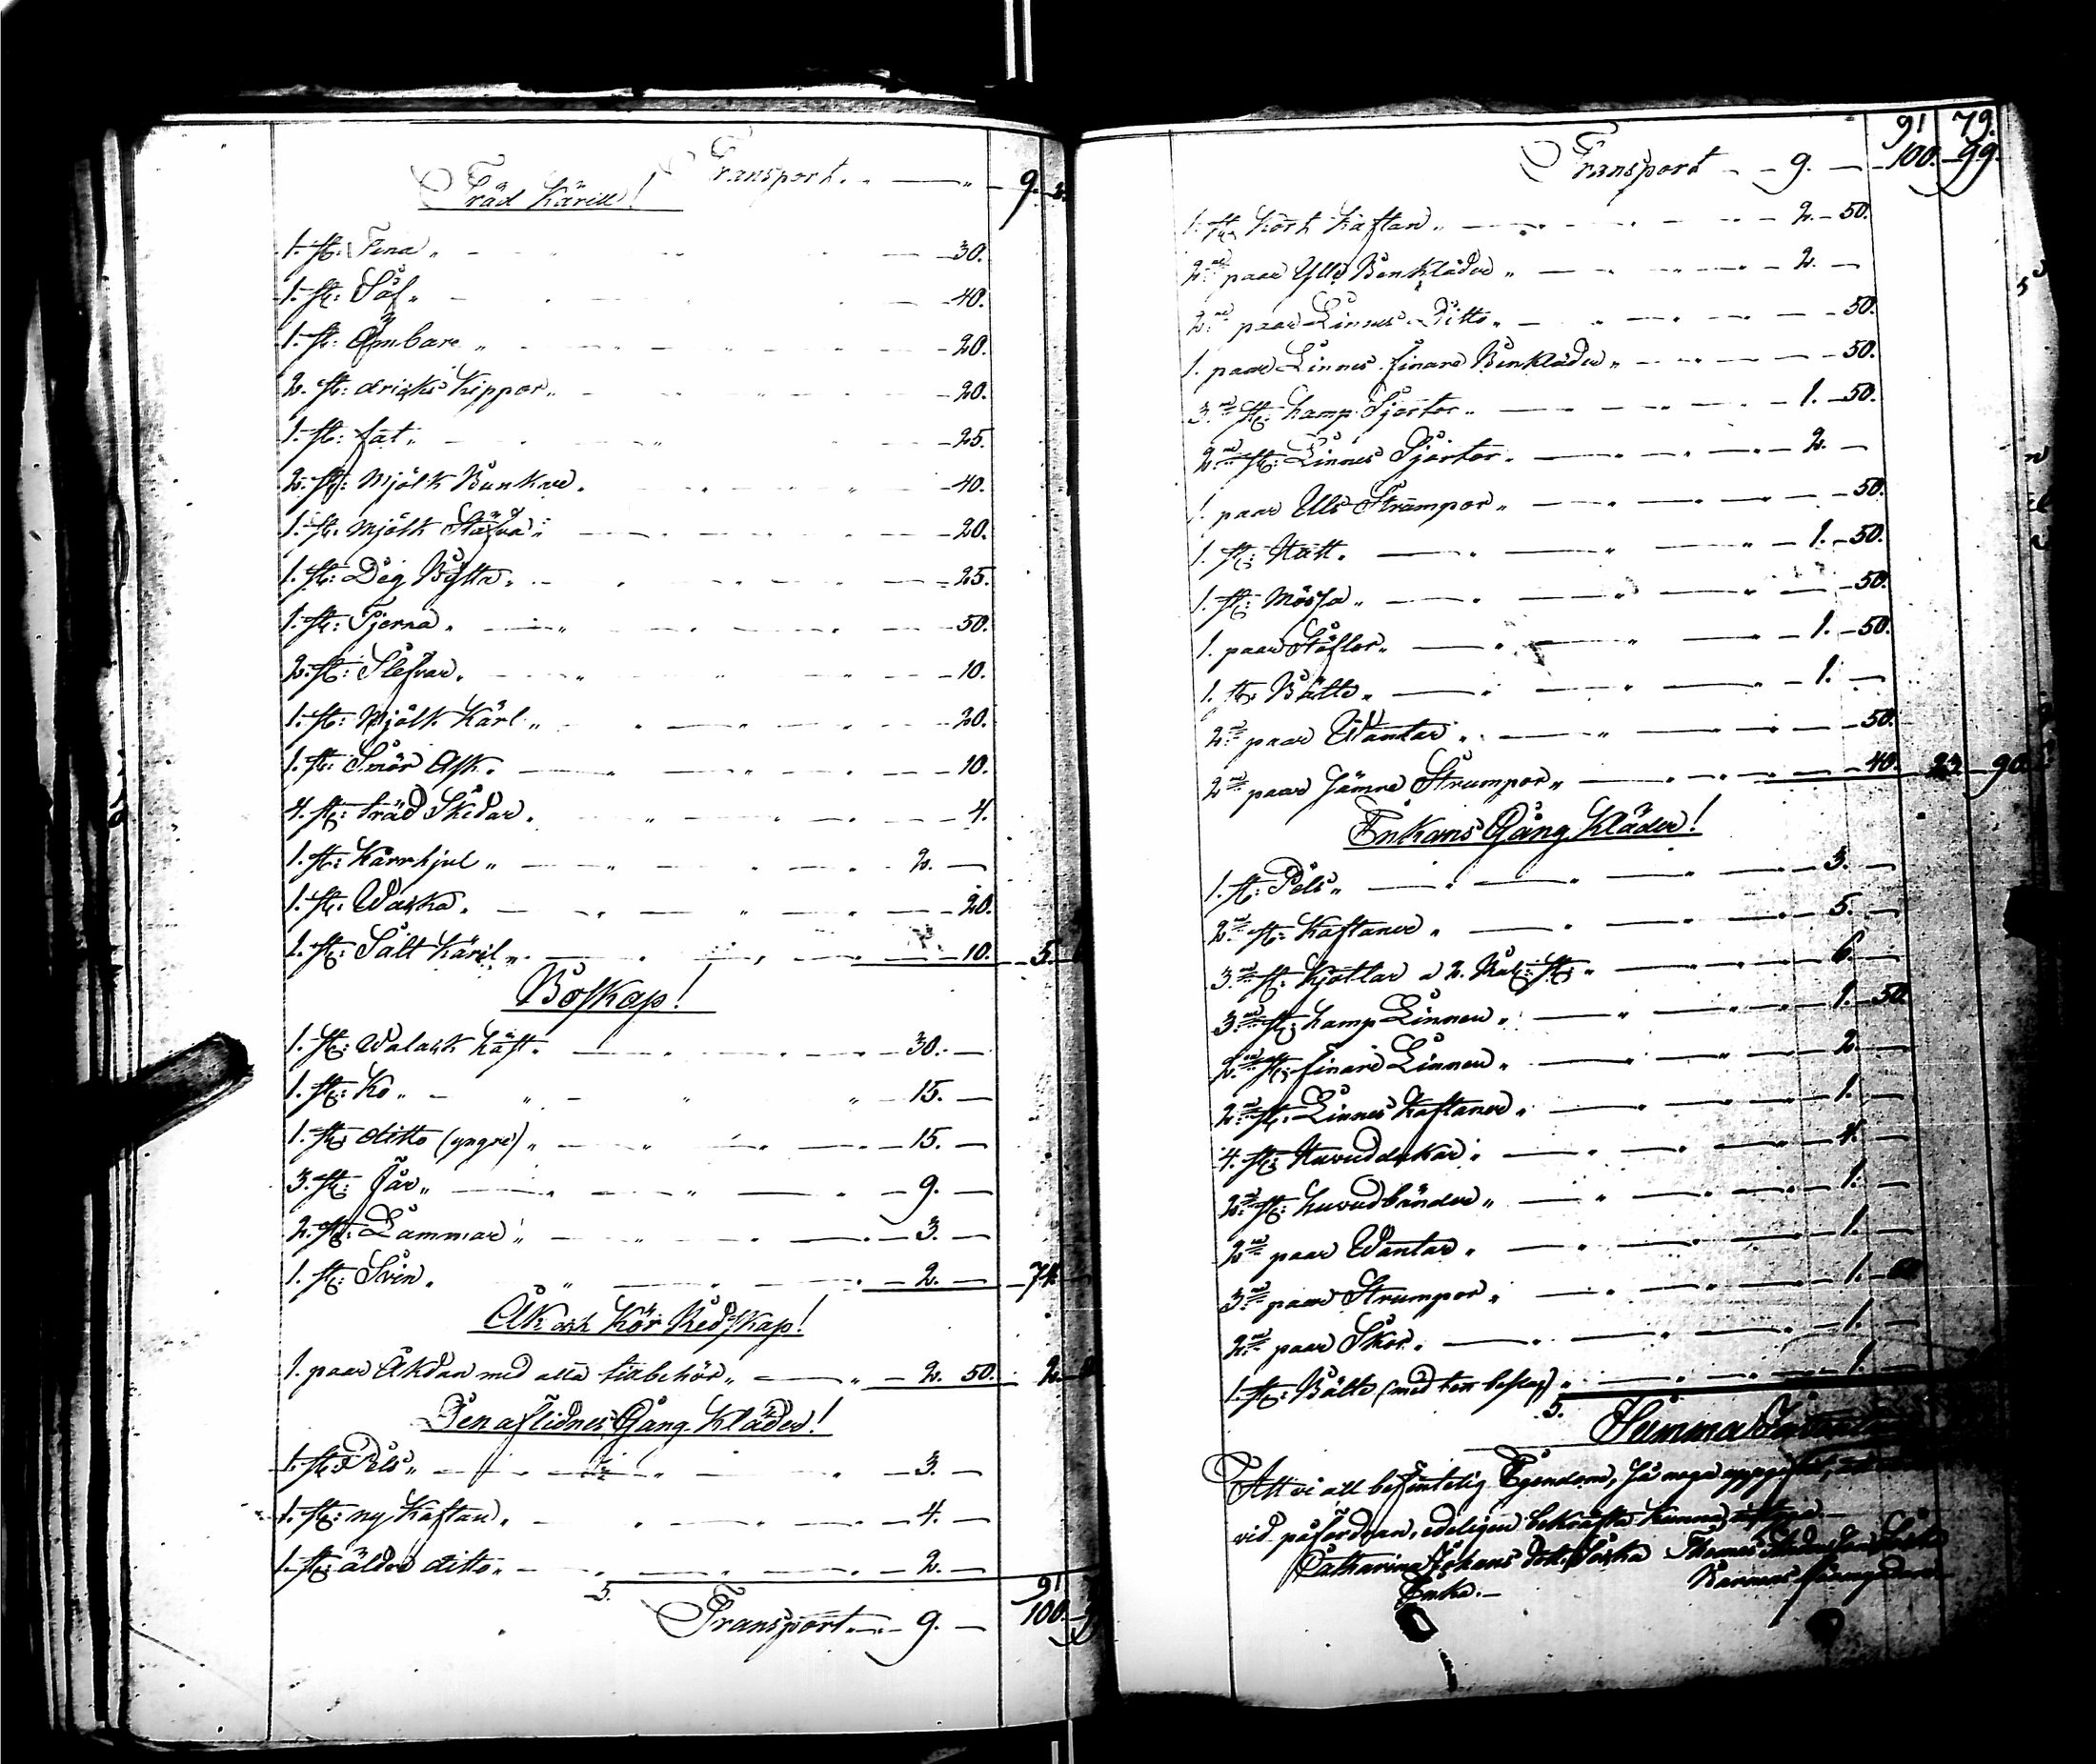 Transport. 9.
Träd Käril!
1. st: Tina 30.
1. st: Så 40.
1. st: Ämbare 20.
2. st: dricks Kippor 20.
1. st: fat 25.
2. st: Mjölk Bunkar 40.
1. st: Mjölk Stäfva 20.
1. st: Deg Bytta 25.
1. st: Tjerna 50.
2. st: Slefvar 10.
1. st: Mjölk Kärl 20.
1. st: Smör Ask 10.
4. st: träd Skedar 4.
1. st: Kärrhjul 2.
1. st: Waska 20.
1. st: Salt Käril 10. 5.
Boskap!
1. st: Walack häst 30.
1. st: Ko 15.
1. st: ditto (yngre) 15.
3. st: Får 9.
2. st: Lammar 3.
1. st: Svin 2. 74.
Åk och Kör Redskap!
1. paar Åkdon med alla tillbehör 2. 50. 2.
Den aflidnes Gång Kläder!
1. st: Päls 3.
1. st: ny Kaftan 4.
1. st: äldre ditto 2.
5. 91
Transport 9. 100.
91 79.
Transport 9. 100. 99.
1. st: Kort Kaftan 2. 50.
2. paar Ylle Benkläder 2.
2. paar Linnes Ditto 50.
1. paar Linnes finare Benkläder 50.
3. st: hamp Sjortor 1. 50.
2. st: Linnes Sjortor 2.
1. paar Ulls Strumpor 50.
1. st: Hatt 1. 50.
1. st: Mössa 50.
1. paar Stöflor 1. 50.
1. st: Bälte 1.
2. paar Wantar 50.
2. paar Sämre Strumpor 40. 23. 90.
Enkans Gång Kläder!
1. st: Päls 3.
2. st: Kaftaner 5.
3. st: Kjortlar a 2. Rub: st: 6.
3. st: hamp Linnen 1. 50.
2. st: finare Linnen 2.
2. st: Linnes Kaftaner 1.
4. st: Huvuddukar 4.
2. st: huvudbänder 1.
2. paar Wantar 1.
3. paar Strumpor 1.
2. paar Skor 1.
1. st: Bälte (med ten beslag) 1.
5.
Summa
Att vi all befintelig Egendom, så noga uppgifvit,
vid påfordran, edeligen bekräfta kunna,
Catharina Johans dot:
Enka.
Barnens